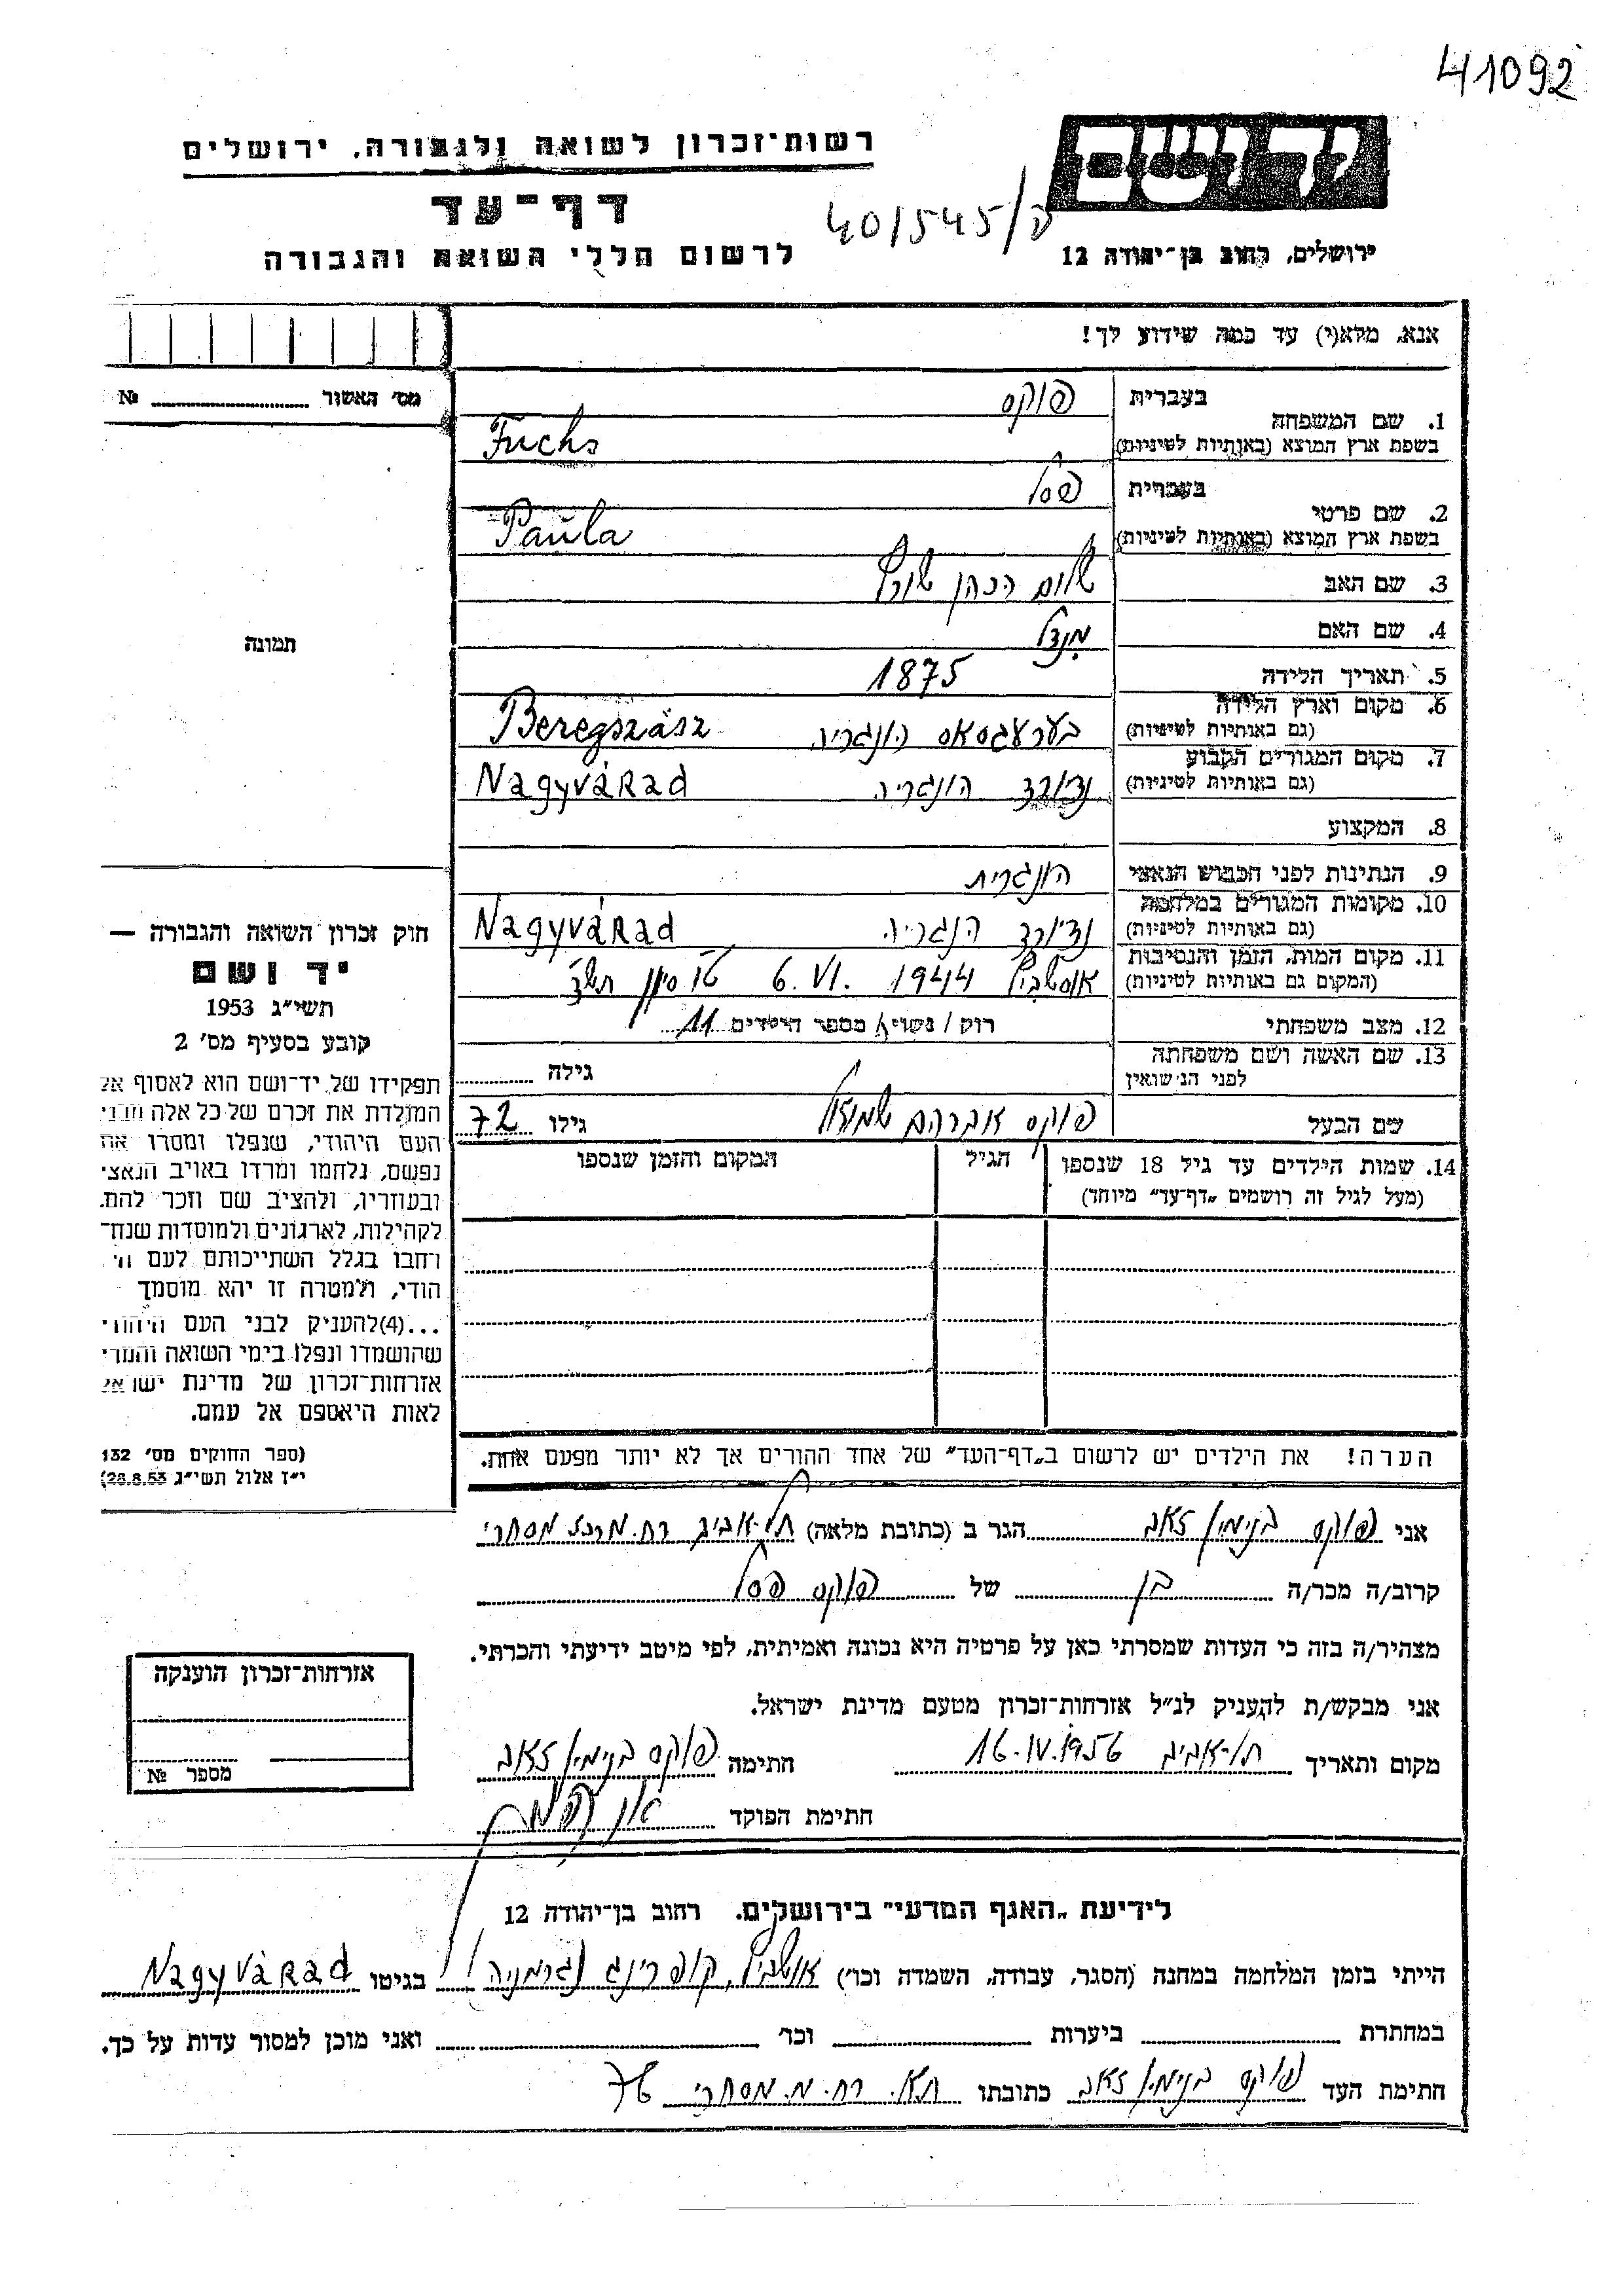 41092
רשות־זכרון לשואה ולגבורה, ירושלים
יד ושם
דף־עד
40/545/ה
לרשום חללי השואה והגבורה
ירושלים, רחוב בן־יהודה 12
אנא, מלא(י) עד כמה שידוע לך!
מס׳ האשור № 
1. שם המשפחה
בעברית פוקס
בשפת ארץ המוצא (באותיות לטיניות) Fuchs
2. שם פרטי
בעברית פסל
בשפת ארץ המוצא (באותיות לטיניות) Paula
3. שם האב שלום הכהן שורץ
4. שם האם מינדל
5. תאריך הלידה 1875
6. מקום וארץ הלידה
(גם באותיות לטיניות) בערעגסאס הונגריה Beregszász
7. מקום המגורים הקבוע
(גם באותיות לטיניות) נדיורד הונגריה Nagyvárad
8. המקצוע
9. הנתינות לפני הכבוש הנאצי הונגרית
10. מקומות המגורים במלחמה
(גם באותיות לטיניות) נדיורד הנגריה Nagyvárad
11. מקום המות, הזמן והנסיבות
(המקום גם באותיות לטיניות) אושביץ 6.VI. 1944 ט״ו סיון תש״ד
12. מצב משפחתי רוק / נשוי / מספר הילדים 11
13. שם האשה ושם משפחתה
לפני הנישואין גילה
שם הבעל פוקס אברהם שמואל גילו 72
14. שמות הילדים עד גיל 18 שנספו
(מעל לגיל זה רושמים „דף־עד״ מיוחד)
הגיל
המקום והזמן שנספו
הערה! את הילדים יש לרשום ב„דף־העד״ של אחד ההורים אך לא יותר מפעם אחת.
תמונה
חוק זכרון השואה והגבורה —
יד ושם
תשי״ג 1953
קובע בסעיף מס׳ 2
תפקידו של יד־ושם הוא לאסוף אל
המולדת את זכרם של כל אלה מבני
העם היהודי, שנפלו ומסרו את
נפשם, נלחמו ומרדו באויב הנאצי
ובעוזריו, ולהציב שם וזכר להם,
לקהילות, לארגונים ולמוסדות שנח־
רחבו בגלל השתייכותם לעם הי
הודי, ולמטרה זו יהא מוסמך
...(4)להעניק לבני העם היהודי
שהושמדו ונפלו בימי השואה והמרי
אזרחות־זכרון של מדינת ישראל
לאות היאספם אל עמם.
(ספר החוקים מס׳ 132
י״ז אלול תשי״ג 28.8.53)
אני פוקס בנימין זאב הגר ב (כתובת מלאה) תל־אביב רח. מרכז מסחרי
קרוב/ה מכר/ה בן של פוקס פסל
מצהיר/ה בזה כי העדות שמסרתי כאן על פרטיה היא נכונה ואמיתית, לפי מיטב ידיעתי והכרתי.
אני מבקש/ת להעניק לנ״ל אזרחות־זכרון מטעם מדינת ישראל.
מקום ותאריך תל־אביב 16.IV.1956 חתימה פוקס בנימין זאב
חתימת הפוקד
אזרחות־זכרון הוענקה
מספר №
לידיעת „האגף המדעי״ בירושלים, רחוב בן־יהודה 12
הייתי בזמן המלחמה במחנה (הסגר, עבודה, השמדה וכו׳) אושביץ, קופרינג (גרמניה) בגיטו Nagyvárad
במחתרת ביערות וכו׳ ואני מוכן למסור עדות על כך.
חתימת העד פוקס בנימין זאב כתובתו ת״א. רח. מ. מסחרי 76